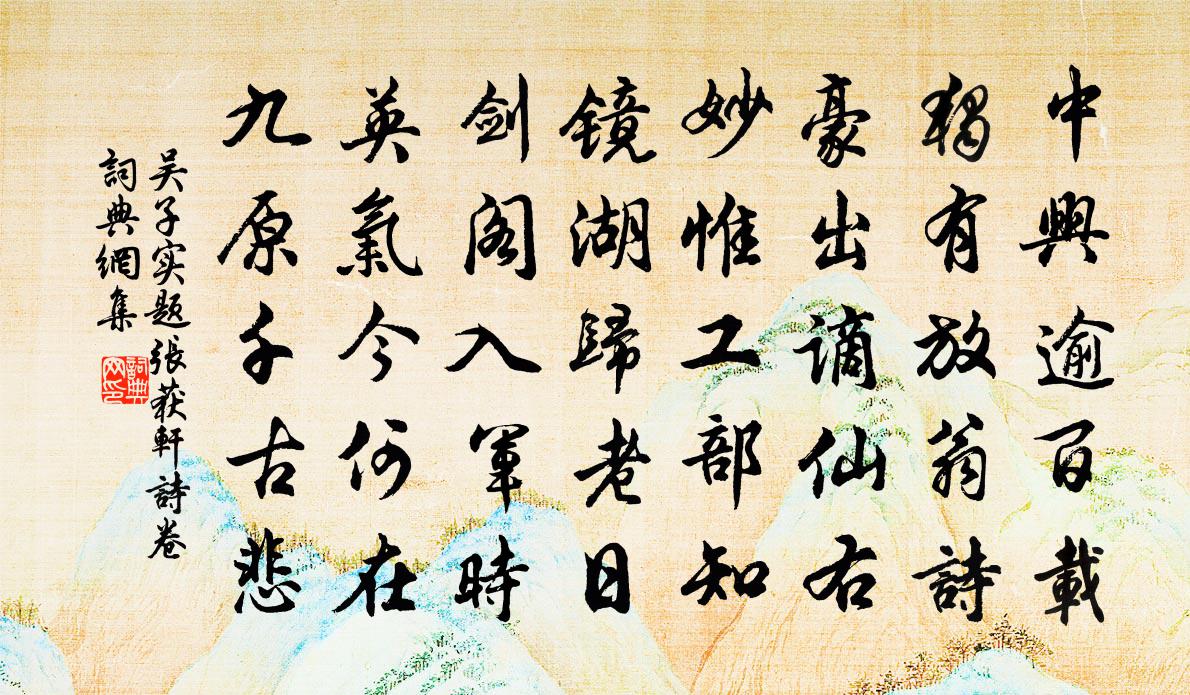 中興逾百載
獨有放翁詩
豪出謫仙右
妙惟工部知
鏡湖歸老日
劍閣入軍時
英氣今何在
九原千古悲
吴子实题張荻軒詩卷
詞典網集
詞典
网印